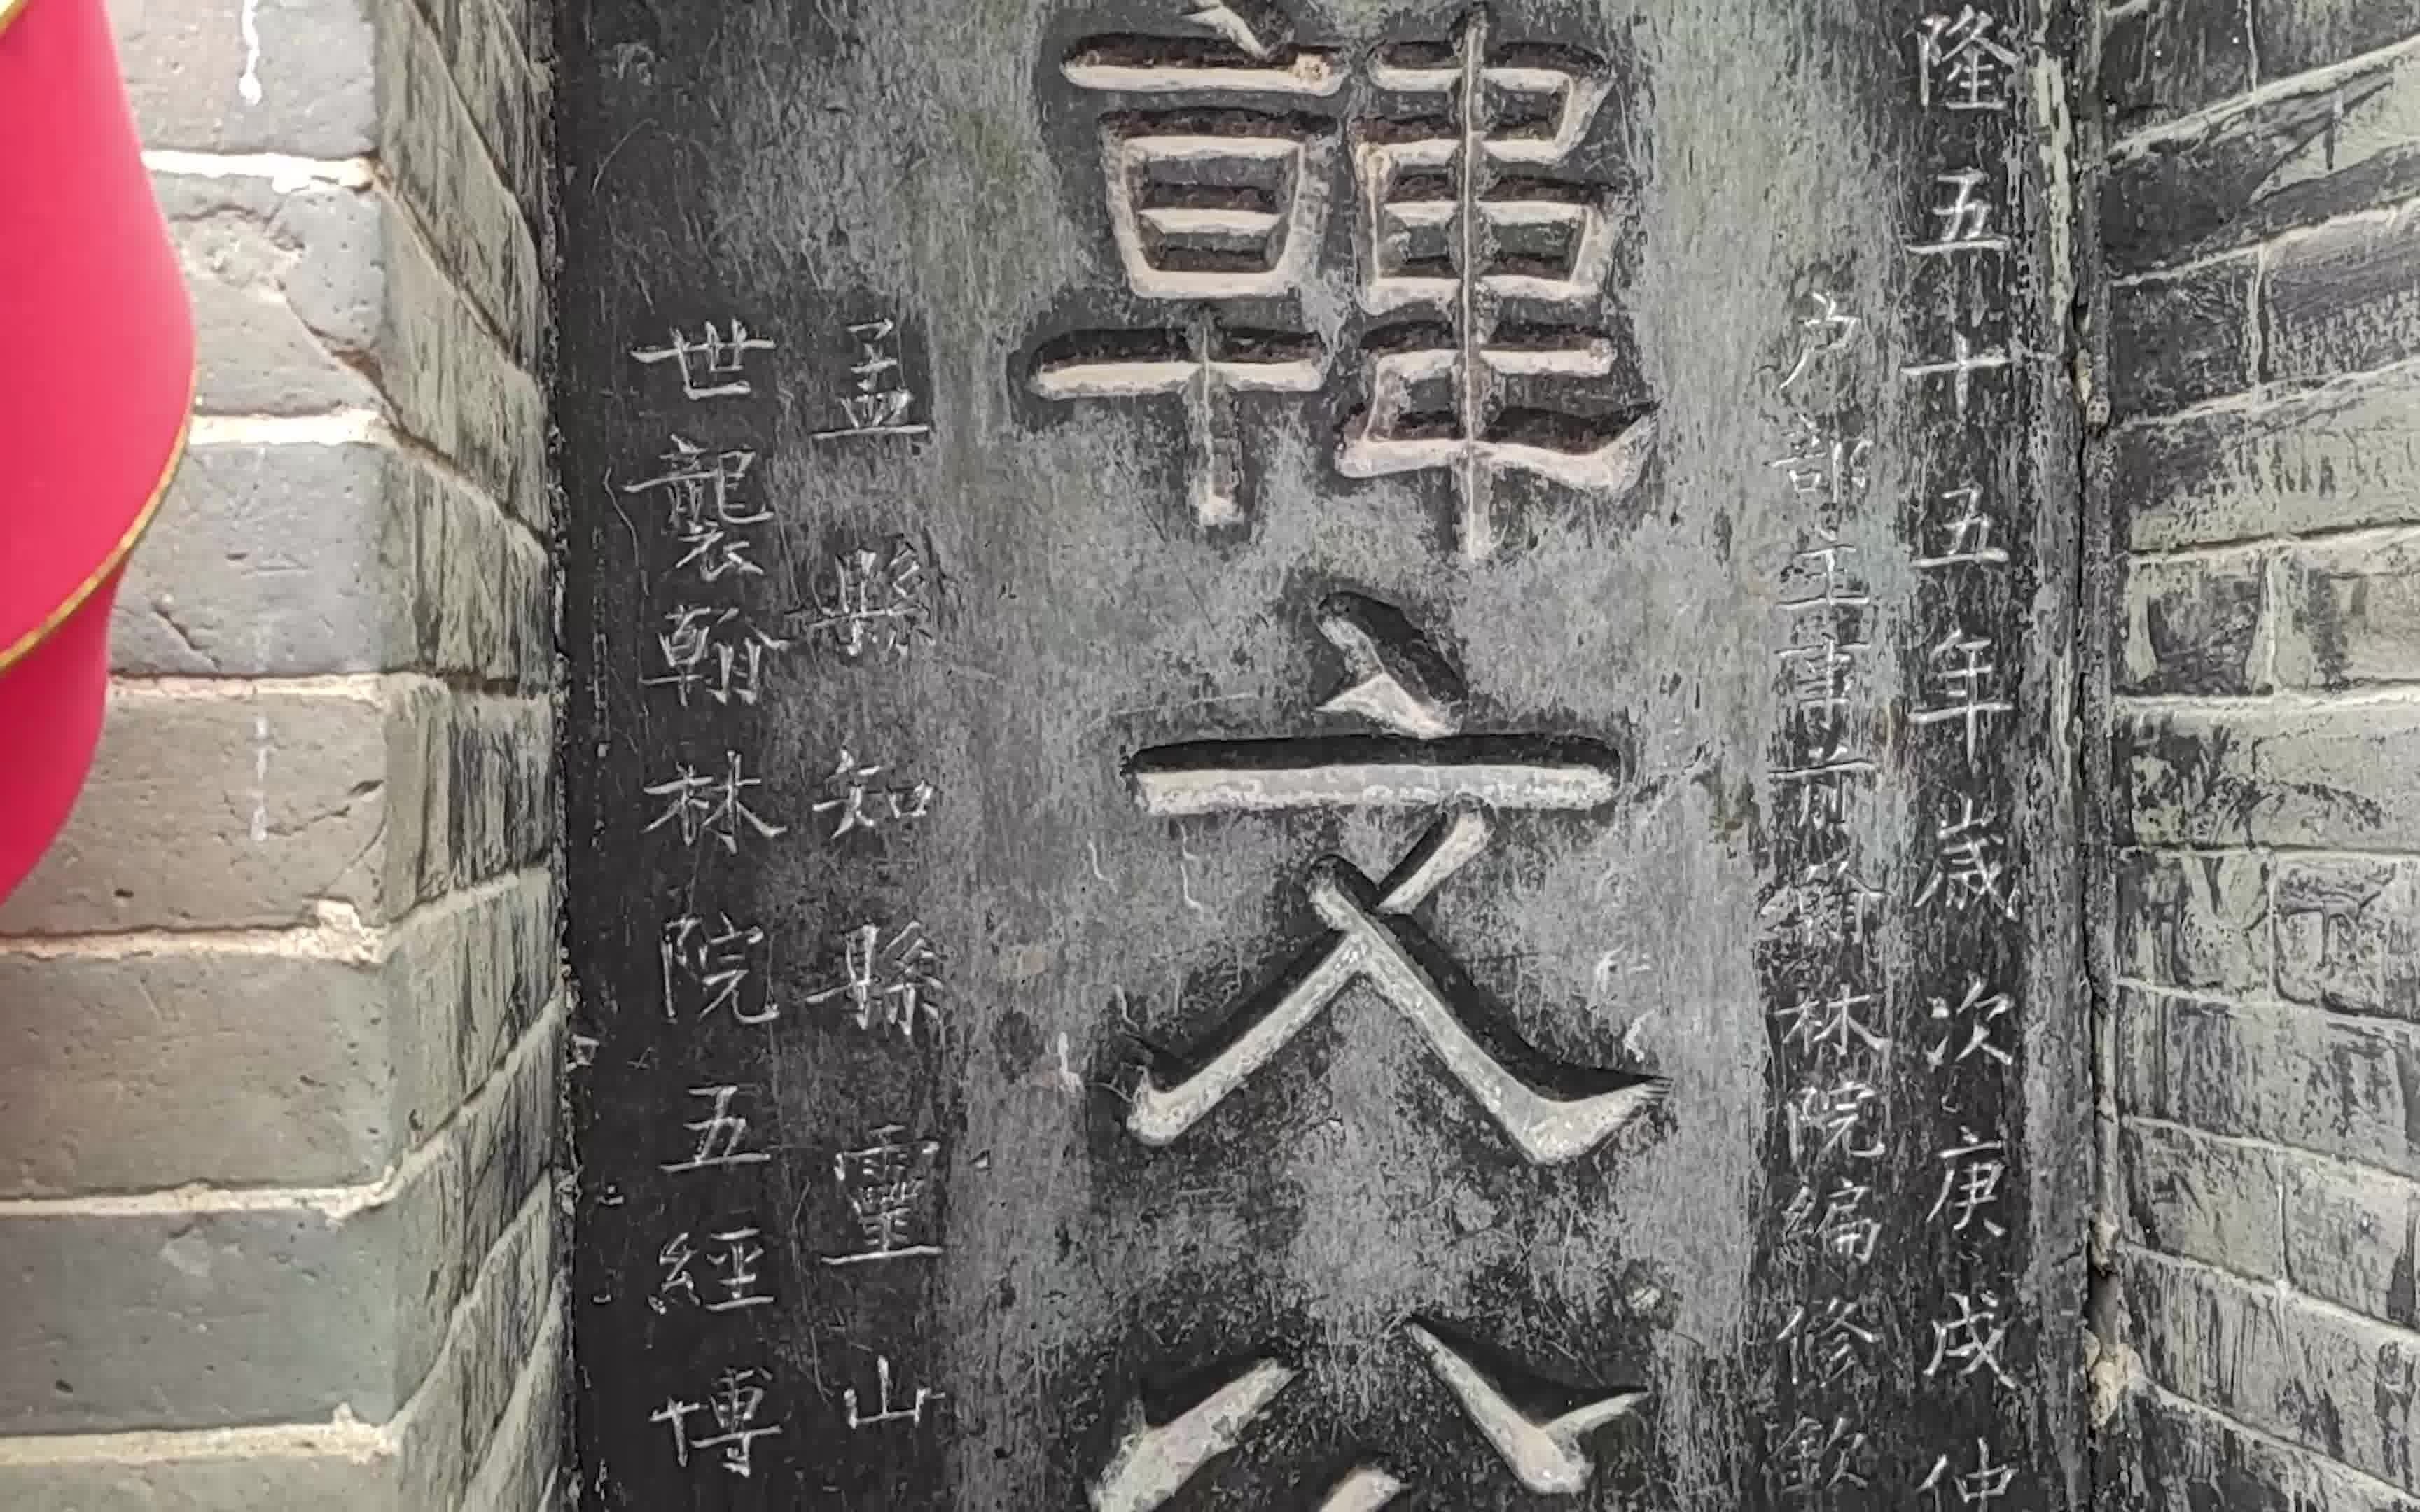 隆五十五年歲次庚戌仲
户部主事前翰林院編修欽
韓文公
孟縣知縣靈山
世襲翰林院五經博